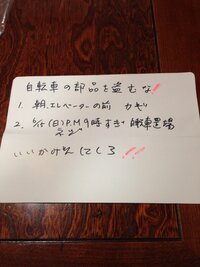 自転車の部品を盗むな!
1. 朝、エレベーターの前 カギ
2. 6/15(日)P.M 9時すぎ 自転車置場
ネジ
いいかげんにしろ!!!